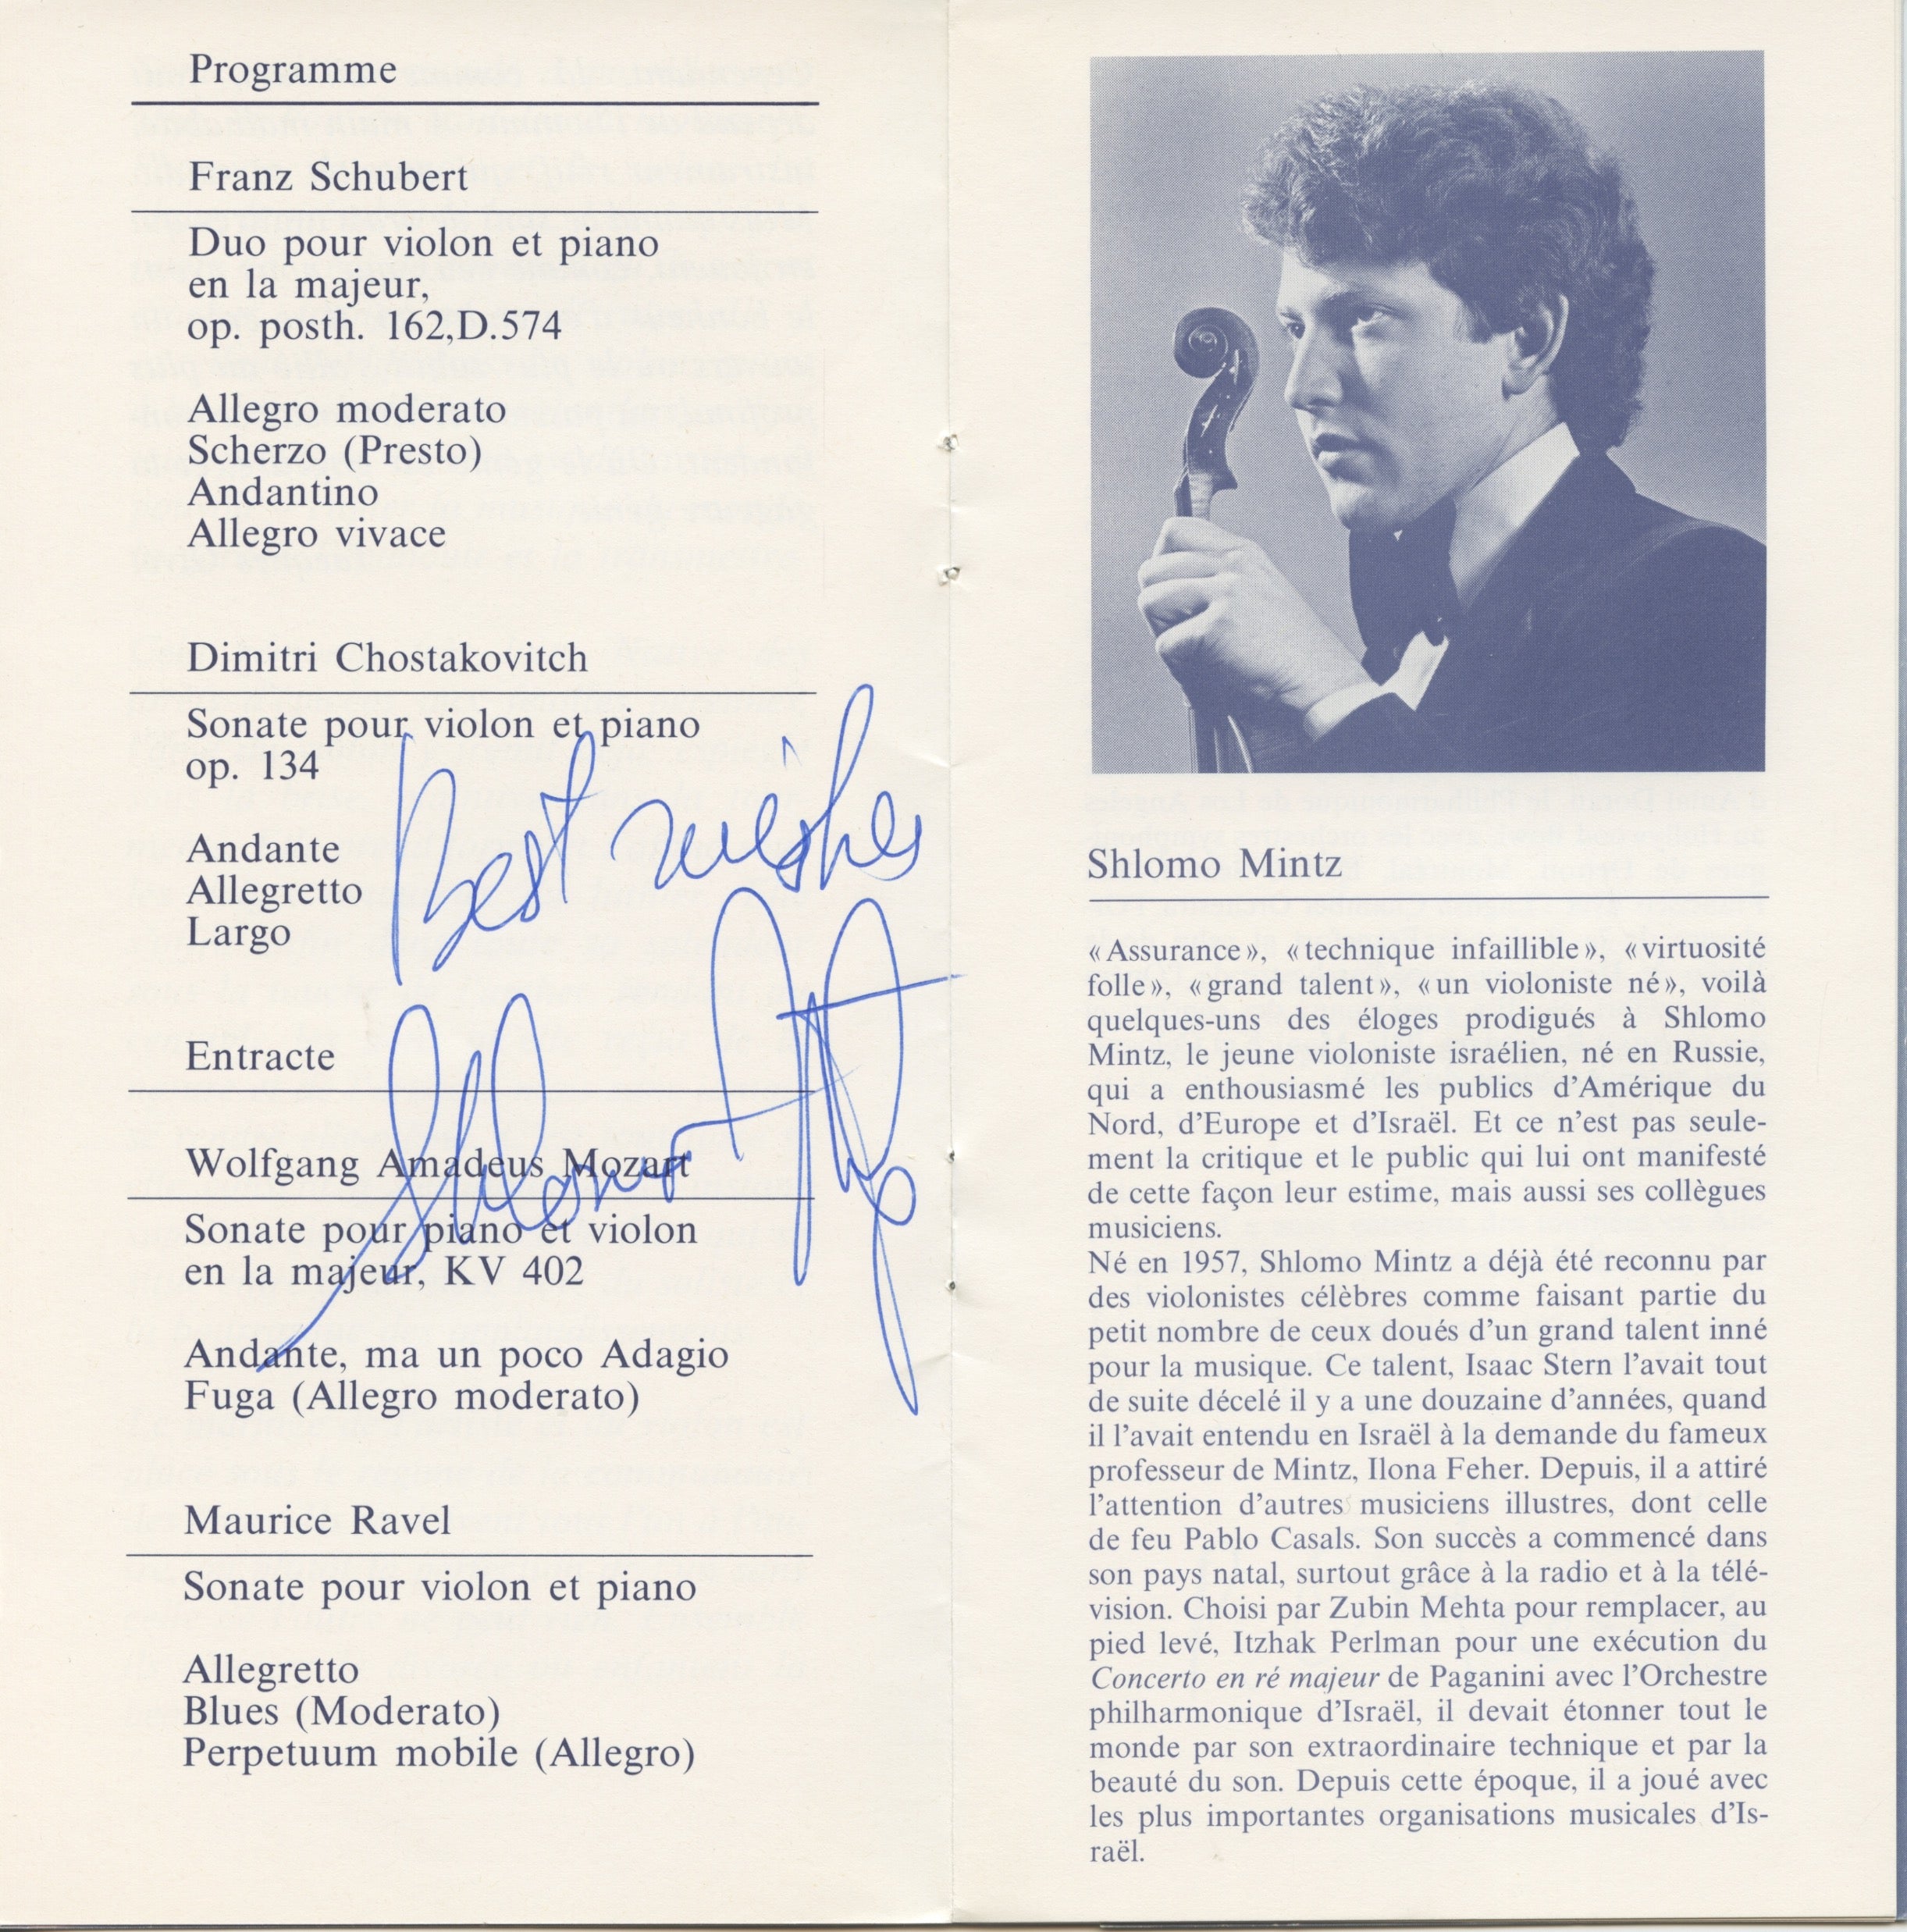 Programme
Franz Schubert
Duo pour violon et piano
en la majeur,
op. posth. 162,D.574
Allegro moderato
Scherzo (Presto)
Andantino
Allegro vivace
Dimitri Chostakovitch
Sonate pour violon et piano
op. 134
Andante
Allegretto
Largo
Best wishes
Shlomo Mintz
Entracte
Wolfgang Amadeus Mozart
Sonate pour piano et violon
en la majeur, KV 402
Andante, ma un poco Adagio
Fuga (Allegro moderato)
Maurice Ravel
Sonate pour violon et piano
Allegretto
Blues (Moderato)
Perpetuum mobile (Allegro)
Shlomo Mintz
«Assurance», «technique infaillible», «virtuosité
folle», «grand talent», «un violoniste né», voilà
quelques-uns des éloges prodigués à Shlomo
Mintz, le jeune violoniste israélien, né en Russie,
qui a enthousiasmé les publics d'Amérique du
Nord, d'Europe et d'Israël. Et ce n'est pas seule-
ment la critique et le public qui lui ont manifesté
de cette façon leur estime, mais aussi ses collègues
musiciens.
Né en 1957, Shlomo Mintz a déjà été reconnu par
des violonistes célèbres comme faisant partie du
petit nombre de ceux doués d'un grand talent inné
pour la musique. Ce talent, Isaac Stern l'avait tout
de suite décelé il y a une douzaine d'années, quand
il l'avait entendu en Israël à la demande du fameux
professeur de Mintz, Ilona Feher. Depuis, il a attiré
l'attention d'autres musiciens illustres, dont celle
de feu Pablo Casals. Son succès a commencé dans
son pays natal, surtout grâce à la radio et à la télé-
vision. Choisi par Zubin Mehta pour remplacer, au
pied levé, Itzhak Perlman pour une exécution du
Concerto en ré majeur de Paganini avec l'Orchestre
philharmonique d'Israël, il devait étonner tout le
monde par son extraordinaire technique et par la
beauté du son. Depuis cette époque, il a joué avec
les plus importantes organisations musicales d'Is-
raël.